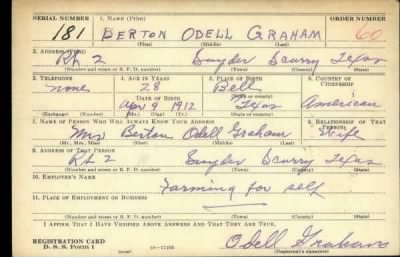 SERIAL NUMBER 1. NAME (Print) ORDER NUMBER
181 BERTON ODELL GRAHAM 60
(First) (Middle) (Last)
2. ADDRESS (Print)
Rt 2 Snyder Scurry Texas
(Number and street or R. F. D. number) (Town) (County) (State)
3. TELEPHONE 4. AGE IN YEARS 5. PLACE OF BIRTH 6. COUNTRY OF CITIZENSHIP
none 28 Bell American
DATE OF BIRTH (Town or county)
Apr 9 1912 Texas
(Exchange) (Number) (Mo.) (Day) (Yr.) (State or country)
7. NAME OF PERSON WHO WILL ALWAYS KNOW YOUR ADDRESS 8. RELATIONSHIP OF THAT PERSON
Mrs Berton Odell Graham Wife
(Mr., Mrs., Miss) (First) (Middle) (Last)
9. ADDRESS OF THAT PERSON
Rt 2 Snyder Scurry Texas
(Number and street or R. F. D. number) (Town) (County) (State)
10. EMPLOYER'S NAME
Farming for self
11. PLACE OF EMPLOYMENT OR BUSINESS
(Number and street or R. F. D. number) (Town) (County) (State)
I AFFIRM THAT I HAVE VERIFIED ABOVE ANSWERS AND THAT THEY ARE TRUE.
REGISTRATION CARD
D. S. S. Form 1 (over) 16—17105 Odell Graham
(Registrant's signature)